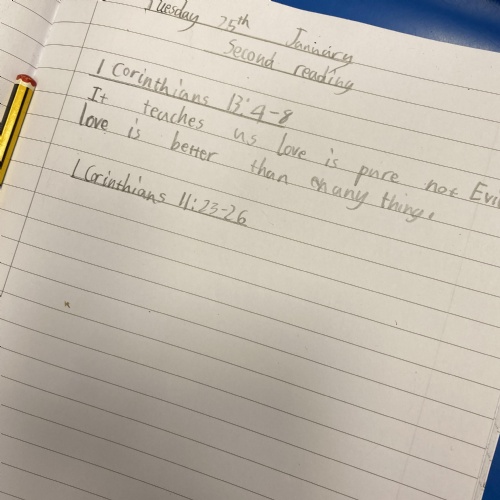 Tuesday 25th January
Second reading
1 Corinthians 13:4-8
It teaches us love is pure not Evil
love is better than enany thing.
1 Corinthians 11:23-26